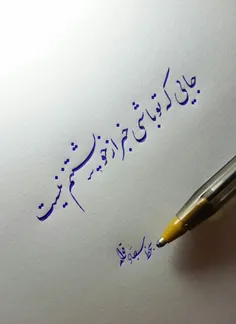 جایی که تو باشی خبر از خویشتنم نیست
بخط